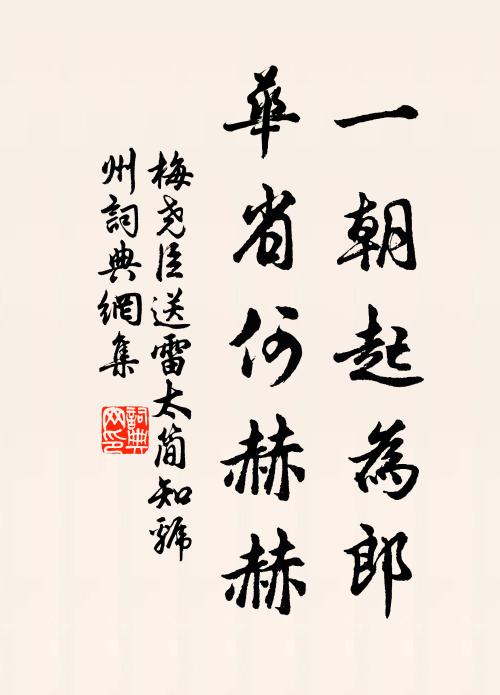 一朝起為郎
華省何赫赫
梅堯臣送雷太簡知虢
州詞典網集
詞典
网印